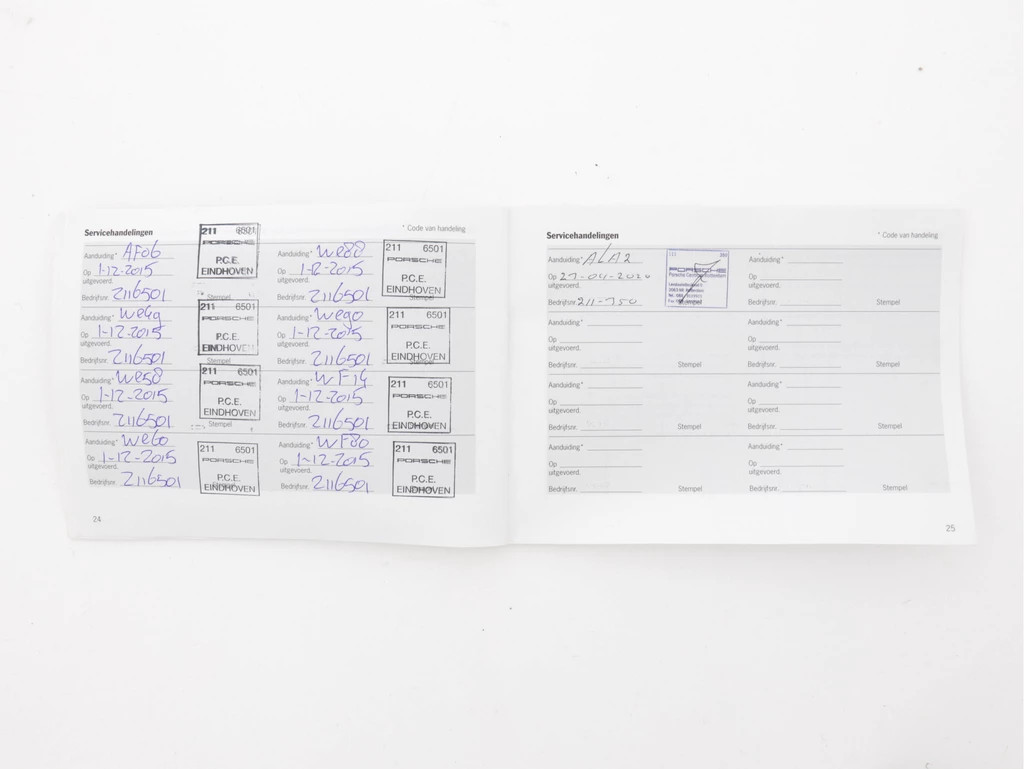 Servicehandelingen
* Code van handeling
Aanduiding* AF06
Op 1-12-2015
uitgevoerd.
Bedrijfsnr. 2116501
211 6501
PORSCHE
P.C.E.
EINDHOVEN
Stempel
Aanduiding* We88
Op 1-12-2015
uitgevoerd.
Bedrijfsnr. 2116501
211 6501
PORSCHE
P.C.E.
EINDHOVEN
Stempel
Aanduiding* We4g
Op 1-12-2015
uitgevoerd.
Bedrijfsnr. 2116501
211 6501
PORSCHE
P.C.E.
EINDHOVEN
Stempel
Aanduiding* Wego
Op 1-12-2015
uitgevoerd.
Bedrijfsnr. 2116501
211 6501
PORSCHE
P.C.E.
EINDHOVEN
Aanduiding* We58
Op 1-12-2015
uitgevoerd.
Bedrijfsnr. 2116501
211 6501
PORSCHE
P.C.E.
EINDHOVEN
Stempel
Aanduiding* WF14
Op 1-12-2015
uitgevoerd.
Bedrijfsnr. 2116501
211 6501
PORSCHE
P.C.E.
EINDHOVEN
Aanduiding* We60
Op 1-12-2015
uitgevoerd.
Bedrijfsnr. 2116501
211 6501
PORSCHE
P.C.E.
EINDHOVEN
Aanduiding* WF80
Op 1-12-2015
uitgevoerd.
Bedrijfsnr. 2116501
211 6501
PORSCHE
P.C.E.
EINDHOVEN
24
Servicehandelingen
* Code van handeling
Aanduiding* ALA2
Op 27-04-2020
uitgevoerd.
Bedrijfsnr. 211-350
PORSCHE
Stempel
Aanduiding*
Op
uitgevoerd.
Bedrijfsnr.
Stempel
Aanduiding*
Op
uitgevoerd.
Bedrijfsnr.
Stempel
Aanduiding*
Op
uitgevoerd.
Bedrijfsnr.
Stempel
Aanduiding*
Op
uitgevoerd.
Bedrijfsnr.
Stempel
Aanduiding*
Op
uitgevoerd.
Bedrijfsnr.
Stempel
Aanduiding*
Op
uitgevoerd.
Bedrijfsnr.
Stempel
Aanduiding*
Op
uitgevoerd.
Bedrijfsnr.
Stempel
25